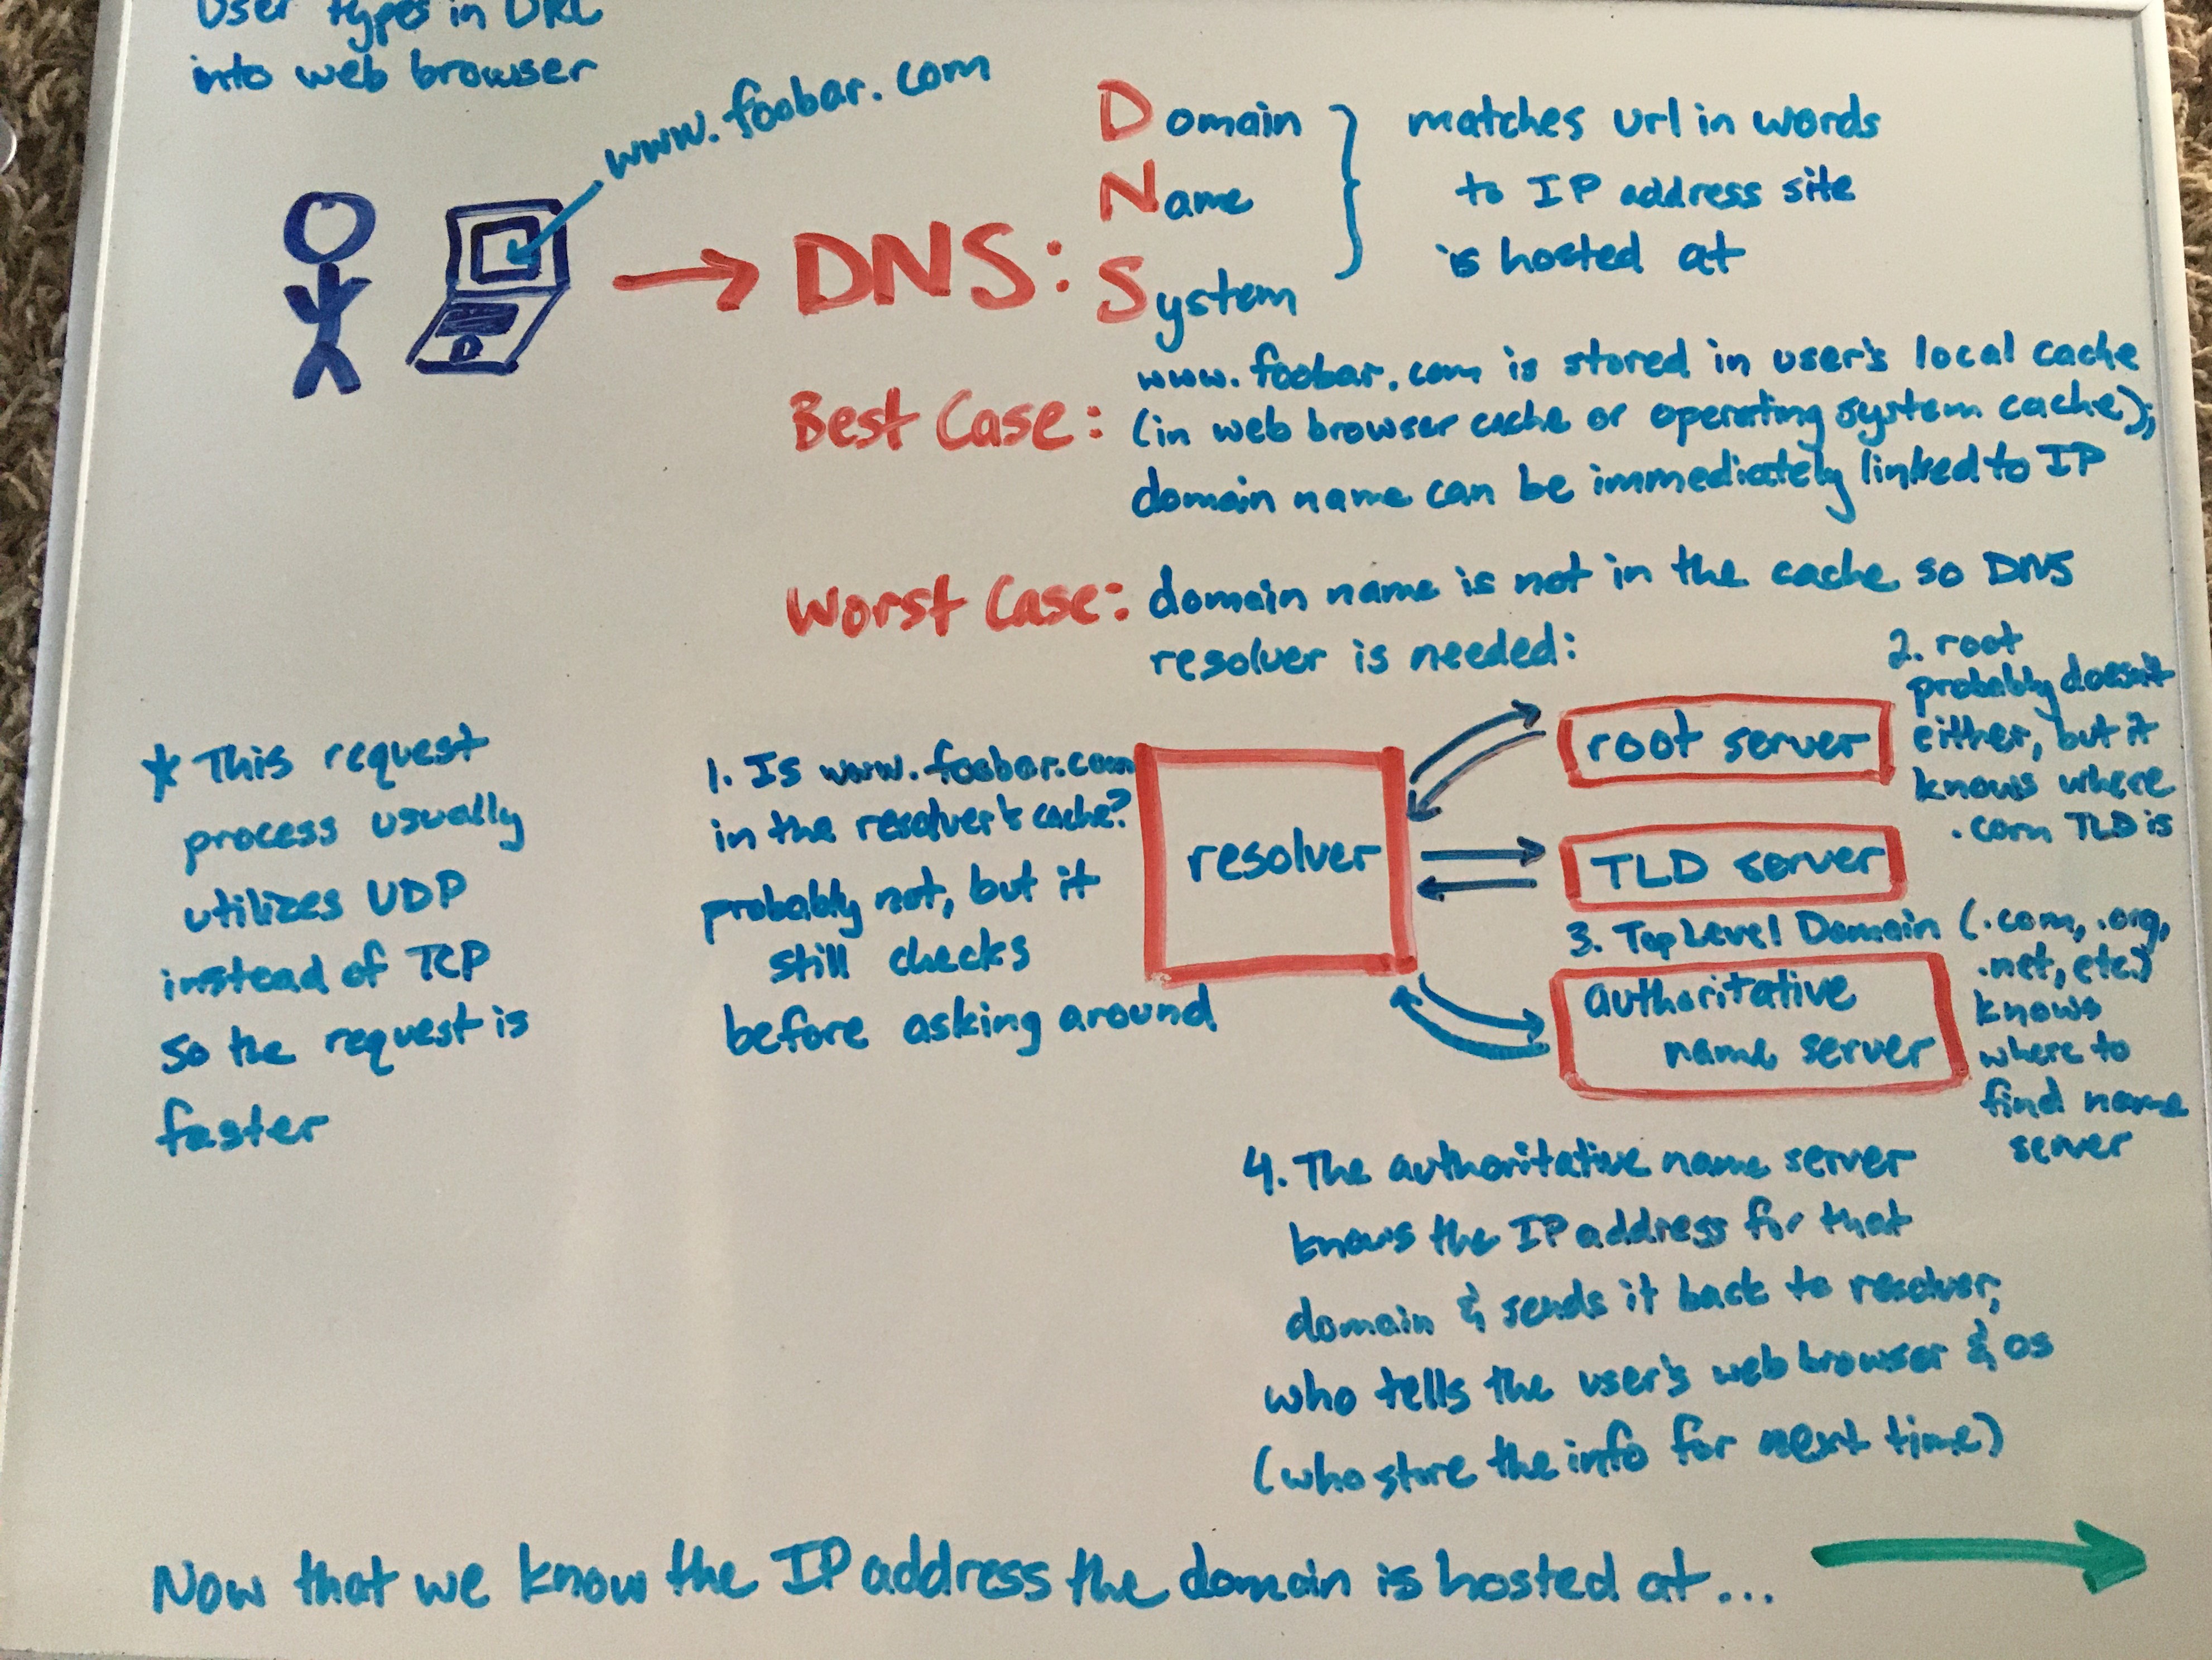 User types in URL
into web browser
www.foobar.com
DNS:
Domain
Name
System
matches url in words
to IP address site
is hosted at
Best Case:
www.foobar.com is stored in user's local cache
(in web browser cache or operating system cache);
domain name can be immediately linked to IP
Worst Case:
domain name is not in the cache so DNS
resolver is needed:
* This request
process usually
utilizes UDP
instead of TCP
so the request is
faster
1. Is www.foobar.com
in the resolver's cache?
probably not, but it
still checks
before asking around
resolver
root server
2. root
probably doesn't
either, but it
knows where
.com TLD is
TLD server
3. Top Level Domain (.com, .org,
.net, etc.)
knows
where to
find name
server
authoritative
name server
4. The authoritative name server
knows the IP address for that
domain & sends it back to resolver,
who tells the user's web browser & os
(who store the info for next time)
Now that we know the IP address the domain is hosted at...